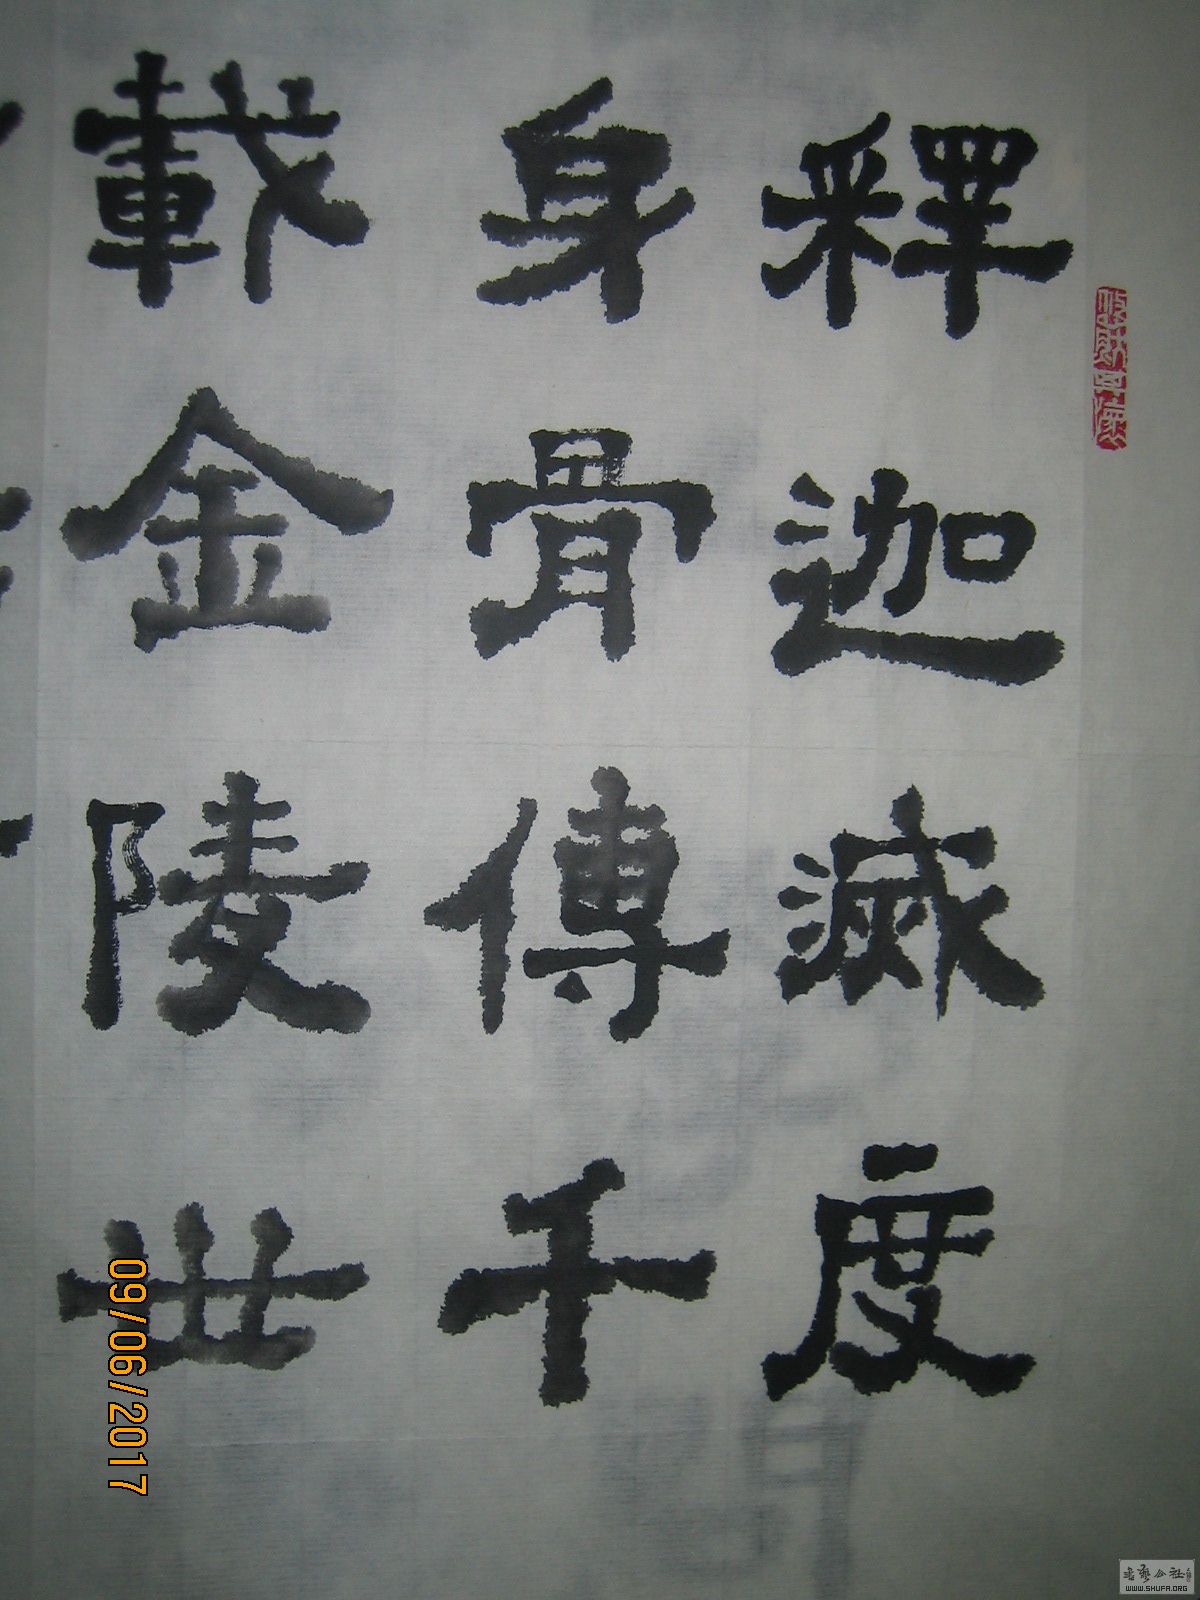 釋迦滅度
身骨傳千
載金陵世
09/06/2017
WWW.SHUFA.ORG